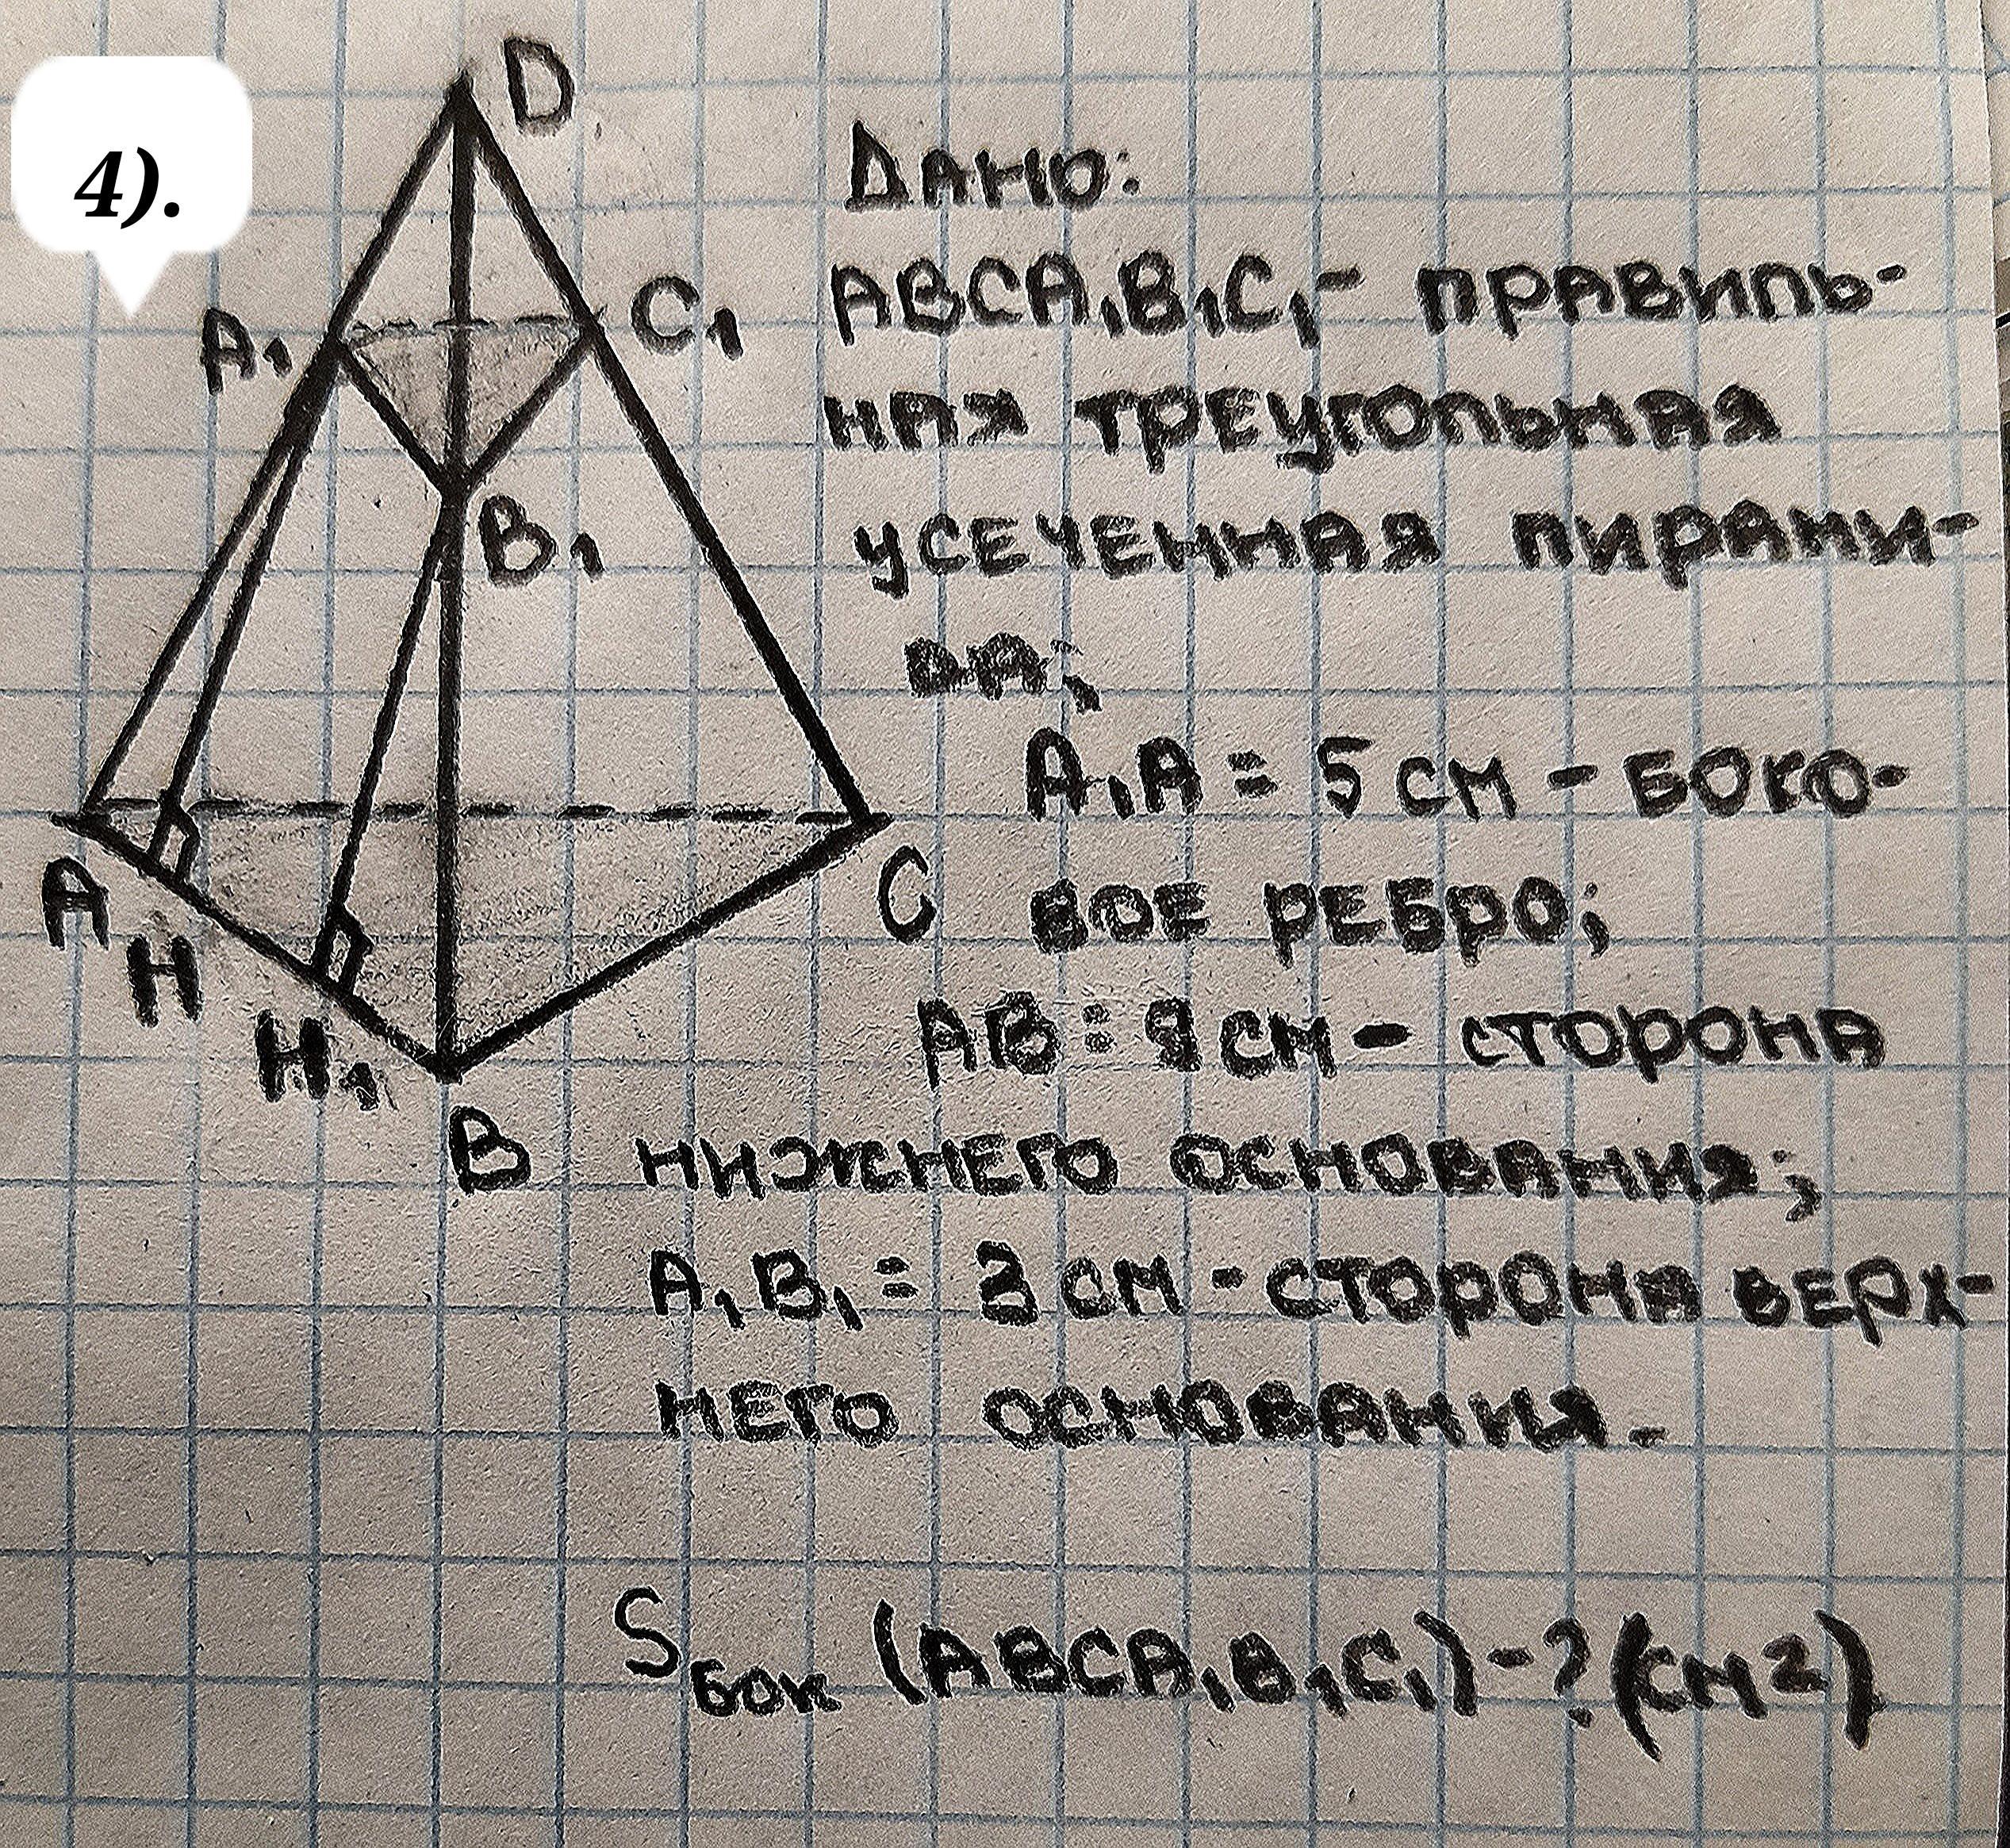 4).
D
A₁
C₁
B₁
A
H
H₁
B
C
Дано:
ABCA₁B₁C₁ - правиль-
ная треугольная
усеченная пирами-
да;
A₁A = 5 см - боко-
вое ребро;
AB = 9 см - сторона
нижнего основания;
A₁B₁ = 3 см - сторона верх-
него основания.
Sбок (ABCA₁B₁C₁) - ? (см²)